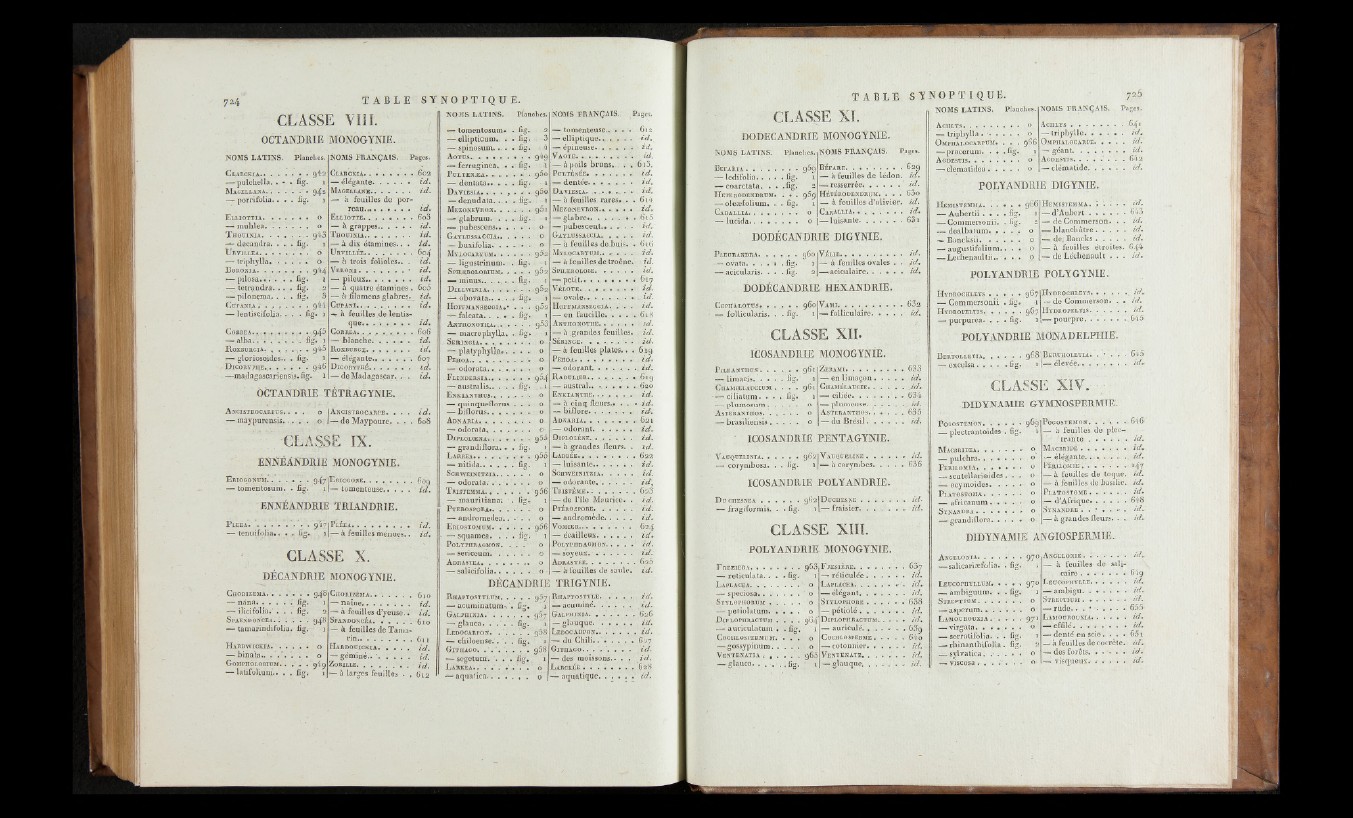 724
TABLE SYNOPTIQUE.
CLASSE VIII.
OCTANDRIE MONOGYNIE.
NOMS LATINS. Planches. NOMS FRANÇAIS. Pages.
CLARCKIA. . . . . . . 942 CLARCKIA. . . . . . . . 602
— pulchella. . . . fig. 1 — élégante. . . . . . . id.
MAGELLANA. . . . . . 942 MAGELLANE. . . . . . . id.
— porrifolia. . . . fig. 1 — à feuilles de por-
reau. . . . . . . . id.
ELLIOTTIA. . . . . . . 0 ELLIOTTE. . . . . . . . 603
— THOUINIA. . . . . . . 943 THOUINIA. . . . . . . . id.
— decandra. . . . fig. 1 — à dix étamines. . . id.
URVILLEA. . . . . . . 0 URVILLÉE. . . . . . . . 604
— triphylla. . . . . . 0 — à trois folioles. . . id.
BORONIA. . . . . . . 944 VERONE. . . . . . . . id.
— pilosa. . . . . . fig. 1 — pileux. . . . . . . id.
— tetrandra. . . . fig. 2 — à quatre étamines. . 605
— pilonema. . . . fig. 3 — à filamens glabres. id.
CUPANIA. . . . . . . 945 CUPANI. . . . . . . . id.
— lentiscifolia. . . . fig. 1 — à feuilles de lentis-
que. . . . . . . . id.
CORREA. . . . . . . . 945 CORREA. . . . . . . . 606
— alba. . . . . . . fig. 1 — blanche. . . . . . id.
ROXBURGIA. . . . . . 945 ROXBURGE. . . . . . . id.
— gloriosoides. . . fig. 1 — élégante. . . . . . . 607
DICORYPHE. . . . . . 946 DICORYPHE. . . . . . . id.
— madagascariensis. fig. 1 — de Madagascar. . . id.
OCTANDRIE TÉTRAGYNIE.
ANCISTROCARPUS. . . . 0 ANCISTROCARPE. . . . id.
— maypurensis. . . . . 0 — de Maypoure. . . . 608
CLASSE IX.
ENNÉANDRIE MONOGYNIE.
ERIOGONUM. . . . . . 947 ERIOGONE. . . . . . . 609
— tomentosum. . . fig. 1 — tomenteuse. . . . . id.
ENNÉANDRIE TRIANDRIE.
PLEEA. . . . . . . . . 947 PLÉEA. . . . . . . . . id.
— tenuifolia. . . . fig. 1 — à feuilles menues. . id.
CLASSE X.
DÉCANDRIE MONOGYNIE.
CHORIZEMA. . . . . . 948 CHORIZEMA. . . . . . . 610
— nana. . . . . . . fig. 1 — naine. . . . . . . id.
— ilicifolia. . . . . fig. 2 — à feuilles d'yeuse. . id.
SPAENDONCEA. . . . . 948 SPANDONCÉA. . . . . . 610
— tamarindifolia. fig. 1 — à feuilles de Tama-
rin. . . . . . . . 611
HARDWICKIA. . . . . . 0 HARDOUICKIA. . . . . id.
— binata. . . . . . . 0 — géminé. . . . . . . id.
GOMPHOLOBIUM. . . . 949 ZORILLE. . . . . . . . id.
— latifolium. . . . fig. 1 — à larges feuilles . . 612
NOMS LATINS. Planches. NOMS FRANÇAIS. Pages.
— tomentosum. . fig. 2 — tomenteuse. . . . 612
— ellipticum. . . fig. 3 — elliptique. . . . . id.
— spinosum. . . . fig. 4 — épineuse. . . . . . id.
AOTUS. . . . . . . . 949 VAOTE. . . . . . . . id.
— ferruginea. . . fig. 1 — à poils bruns. . . . 613.
PULTENÆA. . . . . . 950 PULTÉNÉE. . . . . . . id.
— dentata. . . . . fig. 1 — dentée. . . . . . . id.
DAVIESIA. . . . . . . 950 DAVIESIA. . . . . . . id.
— denudata. . . . fig. 1 — à feuilles rares. . . 614
MEZONEVRON. . . . . 951 MEZONEVRON. . . . . . id.
— glabrum. . . . . fig. 1 — glabre. . . . . . . 615
— pubescens. . . . . . 0 — pubescent. . . . . . id.
GAYLUSSACCIA. . . . . 0 GAYLUSSACIA. . . . . . id.
— buxifolia. . . . . . 0 — à feuilles de buis. . 616
MYLOCARYUM. . . . . 952 MYLOCARYUM. . . . . . id.
— ligustrinum. . . fig. 1 — à feuilles de troëne. id.
— minus. . . . . . fig. 1 — petit. . . . . . . . 617
DILLWINIA. . . . . . 952 VÉLOTE. . . . . . . . id.
— obovata. . . . . fig. 1 — ovale. . . . . . . . id.
HOFFMANSEGGIA. . . . 953 HOFFMANSEGGIA. . . . id.
— falcata. . . . . . fig. 1 — en faucille. . . . . 618
ANTHONOTHA. . . . . 953 ANTHONOTHE. . . . . . id.
— macrophylla. . . fig. 1 — à grandes feuilles. id.
SERINGIA. . . . . . . . 0 SÉRINGE. . . . . . . . id.
— platyphylla. . . . . 0 — à feuilles plates. . . 619
— odorata. . . . . . . 0 — odorant. . . . . . . id.
FLINDERSIA. . . . . . 954
— australis. . . . . fig. 1 — austral. . . . . . . 620
ENKIANTHUS. . . . . . 0 ENKIANTHE. . . . . . . id.
— quinqueflorus. . . . 0 — à cinq fleurs. . . . id.
— biflorus. . . . . . . 0 — biflore. . . . . . . id.
ADNARIA. . . . . . . . 0 ADNARIA. . . . . . . . 621
— odorata. . . . . . . 0 — odorant. . . . . . . id.
DIPLOLÆNA. . . . . . 955 DIPLOLÈNE. . . . . . . id.
— grandiflora. . . fig. 1 — à grandes fleurs. . id.
LARREA. . . . . . . . 955 LARRÉE. . . . . . . . 622
— nitida. . . . . . fig. 1 — luisante. . . . . . . id.
SCHWEINITZIA. . . . . 0 SCHWEINITZIA. . . . . id.
— odorata. . . . . . . 0 — odorante. . . . . . id.
TRISTEMMA. . . . . . 956 TRISTÈME. . . . . . . 623
— mauritiana. . . fig. 1 — de l'île Maurice. . id.
PTEROSPORA. . . . . . 0 PTÉROSPORE. . . . . . id.
— andromedea. . . . . 0 — andromède. . . . . id.
ERIOSTOMUM. . . . . 956 624
— squamea. . . . . fig. 1 — écailleux. . . . . . id.
POLYPHRAGMON. . . . . 0 POLYPHRAGMON. . . . . id.
— sericeum. . . . . . 0 — soyeux. . . . . . . id.
ADRASTEA. . . . . . . 0 ADRASTE. . . . . . . . 625
— salicifolia. . . . . . 0 — à feuilles de saule. id.
DÉCANDRIE TRIGYNIE.
RHAPTOSTYLUM. . . . 957 RHAPTOSTYLE. . . . . id.
— acuminatum. . . fig. 1 — acuminé. . . . . . id.
GALPHIMIA. . . . . . 957 GALPHIMIA. . . . . . . 626
— glauca. . . . . . fig. 1 — glauque. . . . . . . id.
LEDOCARPON. . . . . 958 LEDOCARPON. . . . . . id.
— chiloense. . . . fig. 1 — du Chili. . . . . . . 627
GITHAGO. . . . . . . 958 GITHAGO. . . . . . . . id.
— segetum. . . . . fig. 1 — des moissons. . . . id.
— aquatica. . . . . . . 0 — aquatique. . . . . . id.
TABLE SYNOPTIQUE.
725
CLASSE XI.
DODECANDRIE MONOGYNIE.
NOMS LATINS. Planches. NOMS FRANÇAIS. Pages.
BEFARIA. . . . . . . . 959 BÉFARE. . . . . . . . 629
— ledifolia. . . . . fig. 1 — à feuilles de lédon. id.
— coarctata. . . . fig. 2 — resserrée. . . . . . id.
HETERODENDRUM. . . 959 HÉTÉRODENDRUM. . . . 630
— oleæfolium. . . fig. 1 — à feuilles d'olivier. id.
CARALLIA. . . . . . . . 0 CARALLIA. . . . . . . . id.
— lucida. . . . . . . . 0 — luisante. . . . . . . 631
DODÉCANDRIE DIGYNIE.
PLEURANDRA. . . . . 960 VÉLIE. . . . . . . . . id.
— ovata. . . . . . fig. 1 — à feuilles ovales . . id.
— acicularis. . . . fig. 2 — aciculaire. . . . . . id.
DODÉCANDRIE HEXANDRIE.
CEPHALOTUS. . . . . . 960 VAMI. . . . . . . . . 632
— follicularis. . . fig. 1 — folliculaire. . . . . id.
CLASSE XII.
ICOSANDRIE MONOGYNIE.
PILEANTHUS. . . . . . 961 ZERAMI. . . . . . . . 633
— limacis. . . . . . fig. 1 — en limaçon. . . . . id.
CHAMÆLAUCIUM. . . . 961 CHAMÉLAUCIE. . . . . id.
— ciliatum. . . . . fig. 1 — ciliée. . . . . . . . 634
— plumosum. . . . . . 0 — plumeuse. . . . . . id.
ASTERANTHOS. . . . . . 0 ASTERANTHOS. . . . . 635
— brasiliensis. . . . . 0 — du Brésil. . . . . . id.
ICOSANDRIE PENTAGYNIE.
VAUQUELINIA. . . . . 962 VAUQUELINE. . . . . . id.
— corymbosa. . . fig. 1 — à corymbes. . . . . 636
ICOSANDRIE POLYANDRIE.
DUCHESNEA. . . . . . 962 DUCHESNE. . . . . . . id.
— fragiformis. . . fig. 1 — fraisier. . . . . . . id.
CLASSE XIII.
POLYANDRIE MONOGYNIE.
FREZIERA. . . . . . . 963 FRESIÈRE. . . . . . . 637
— reticulata. . . . fig. 1 — réticulée. . . . . . id.
LAPLACEA. . . . . . . 0 LAPLACEA. . . . . . . id.
— speciosa. . . . . . . 0 — élégant. . . . . . . id.
STYLOPHORUM. . . . . 0 STYLOPHORE. . . . . . 638
— petiolatum. . . . . . 0 — pétiolé. . . . . . . id.
DIPLOPHRACTUM. . . 964 DIPLOPHRACTUM. . . . id.
— auriculatum. . . fig. 1 — auriculé. . . . . . . 639
COCHLOSPERMUM. . . . 0 COCHLOSPERME. . . . . 640
— gossypium. . . . . . 0 — cotonnier. . . . . . id.
VENTENATIA. . . . . 965 VENTENATE. . . . . . id.
— glauca. . . . . . fig. 1 — glauque. . . . . . . id.
NOMS LATINS. Planches. NOMS FRANÇAIS. Pages.
ACHLYS. . . . . . . . . 0 ACHLYS. . . . . . . . 641
— triphylla. . . . . . . 0 — triphylle. . . . . . id.
OMPHALOCARPUM. . . 966 OMPHALOCARPE. . . . id.
— procerum. . . . fig. 1 — géant. . . . . . . . id.
AGDESTIS. . . . . . . . 0 AGDESTIS. . . . . . . 642
— clematidea. . . . . . 0 — clématide. . . . . . id.
POLYANDRIE DIGYNIE.
HEMISTEMMA. . . . . 966 HEMISTEMMA. . . . . . id.
— Aubertii. . . . . fig. 1 — d'Aubert. . . . . . 643
— Commersonii. . fig. 2 — de Commerson. . . id.
— dealbatum. . . . . . 0 — blanchâtre. . . . . id.
— Banckssii. . . . . . 0 — de Bancks. . . . . . id.
— angustifolium. . . . 0 — à feuilles étroites. 644
— Lechenaultii. . . . . 0 — de Léchenault. . . id.
POLYANDRIE POLYGYNIE.
— Commersonii. . fig. 1 — de Commerson. . . id.
HYDROPELTIS. . . . . 967 HYDROPELTIS. . . . . . id.
— purpurea. . . . fig. 1 — pourpre. . . . . . . 645
POLYANDRIE MONADELPHIE.
BERTOLETIA. . . . . . 968 BERTHOLETIA. . . . . 645
— excelsa. . . . . . fig. 1 — élevée. . . . . . . . id.
CLASSE XIV.
DIDYNAMIE GYMNOSPERMIE.
POGOSTEMON. . . . . 969 POGOSTEMON. . . . . . 646
— plectrantoides. . fig. 1 — à feuilles de plec-
trante. . . . . . . id.
MACBRIDEA. . . . . . . 0 MACBRIDE. . . . . . . id.
— pulchra. . . . . . . 0 — élégante. . . . . . . id.
PERILOMIA. . . . . . . 0 PÉRILOMIE. . . . . . . 647
— scutellarioides. . . . 0 — à feuilles de toque. id.
— ocymoides. . . . . . 0 — à feuilles de basilic. id.
PLATOSTOMA. . . . . . 0 PLATOSTOME. . . . . . id.
— africanum. . . . . . 0 — d'Afrique. . . . . . 648
SYNANDRA. . . . . . . 0 SYNANDRE. . . . . . . id.
— grandiflora. . . . . . 0 — à grandes fleurs. . . id.
DIDYNAMIE ANGIOSPERMIE.
ANGELONIA. . . . . . 970 ANGELONIE. . . . . . . id.
— salicariæfolia. . fig. 1 — à feuilles de sali-
caire. . . . . . . 649
LEUCOPHYLLUM. . . . 970 LEUCOPHYLLE. . . . . id.
— ambiguum. . . . fig. 1 — ambigu. . . . . . . id.
STREPTIUM. . . . . . . 0 STREPTIUM. . . . . . . id.
— asperum. . . . . . . 0 — rude. . . . . . . . . 650
LAMOUROUXIA. . . . . 971 LAMOUROUXIA. . . . . id.
— virgata. . . . . . . . 0 — effilé. . . . . . . . id.
— serrotifolia. . . . fig. 1 — denté en scie. . . . 651
— rhinanthifolia. . fig. 2 — à feuilles de cocrète. id.
— sylvatica. . . . . . . 0 — des forêts. . . . . . id.
— viscosa. . . . . . . . 0 — visqueux. . . . . . . id.